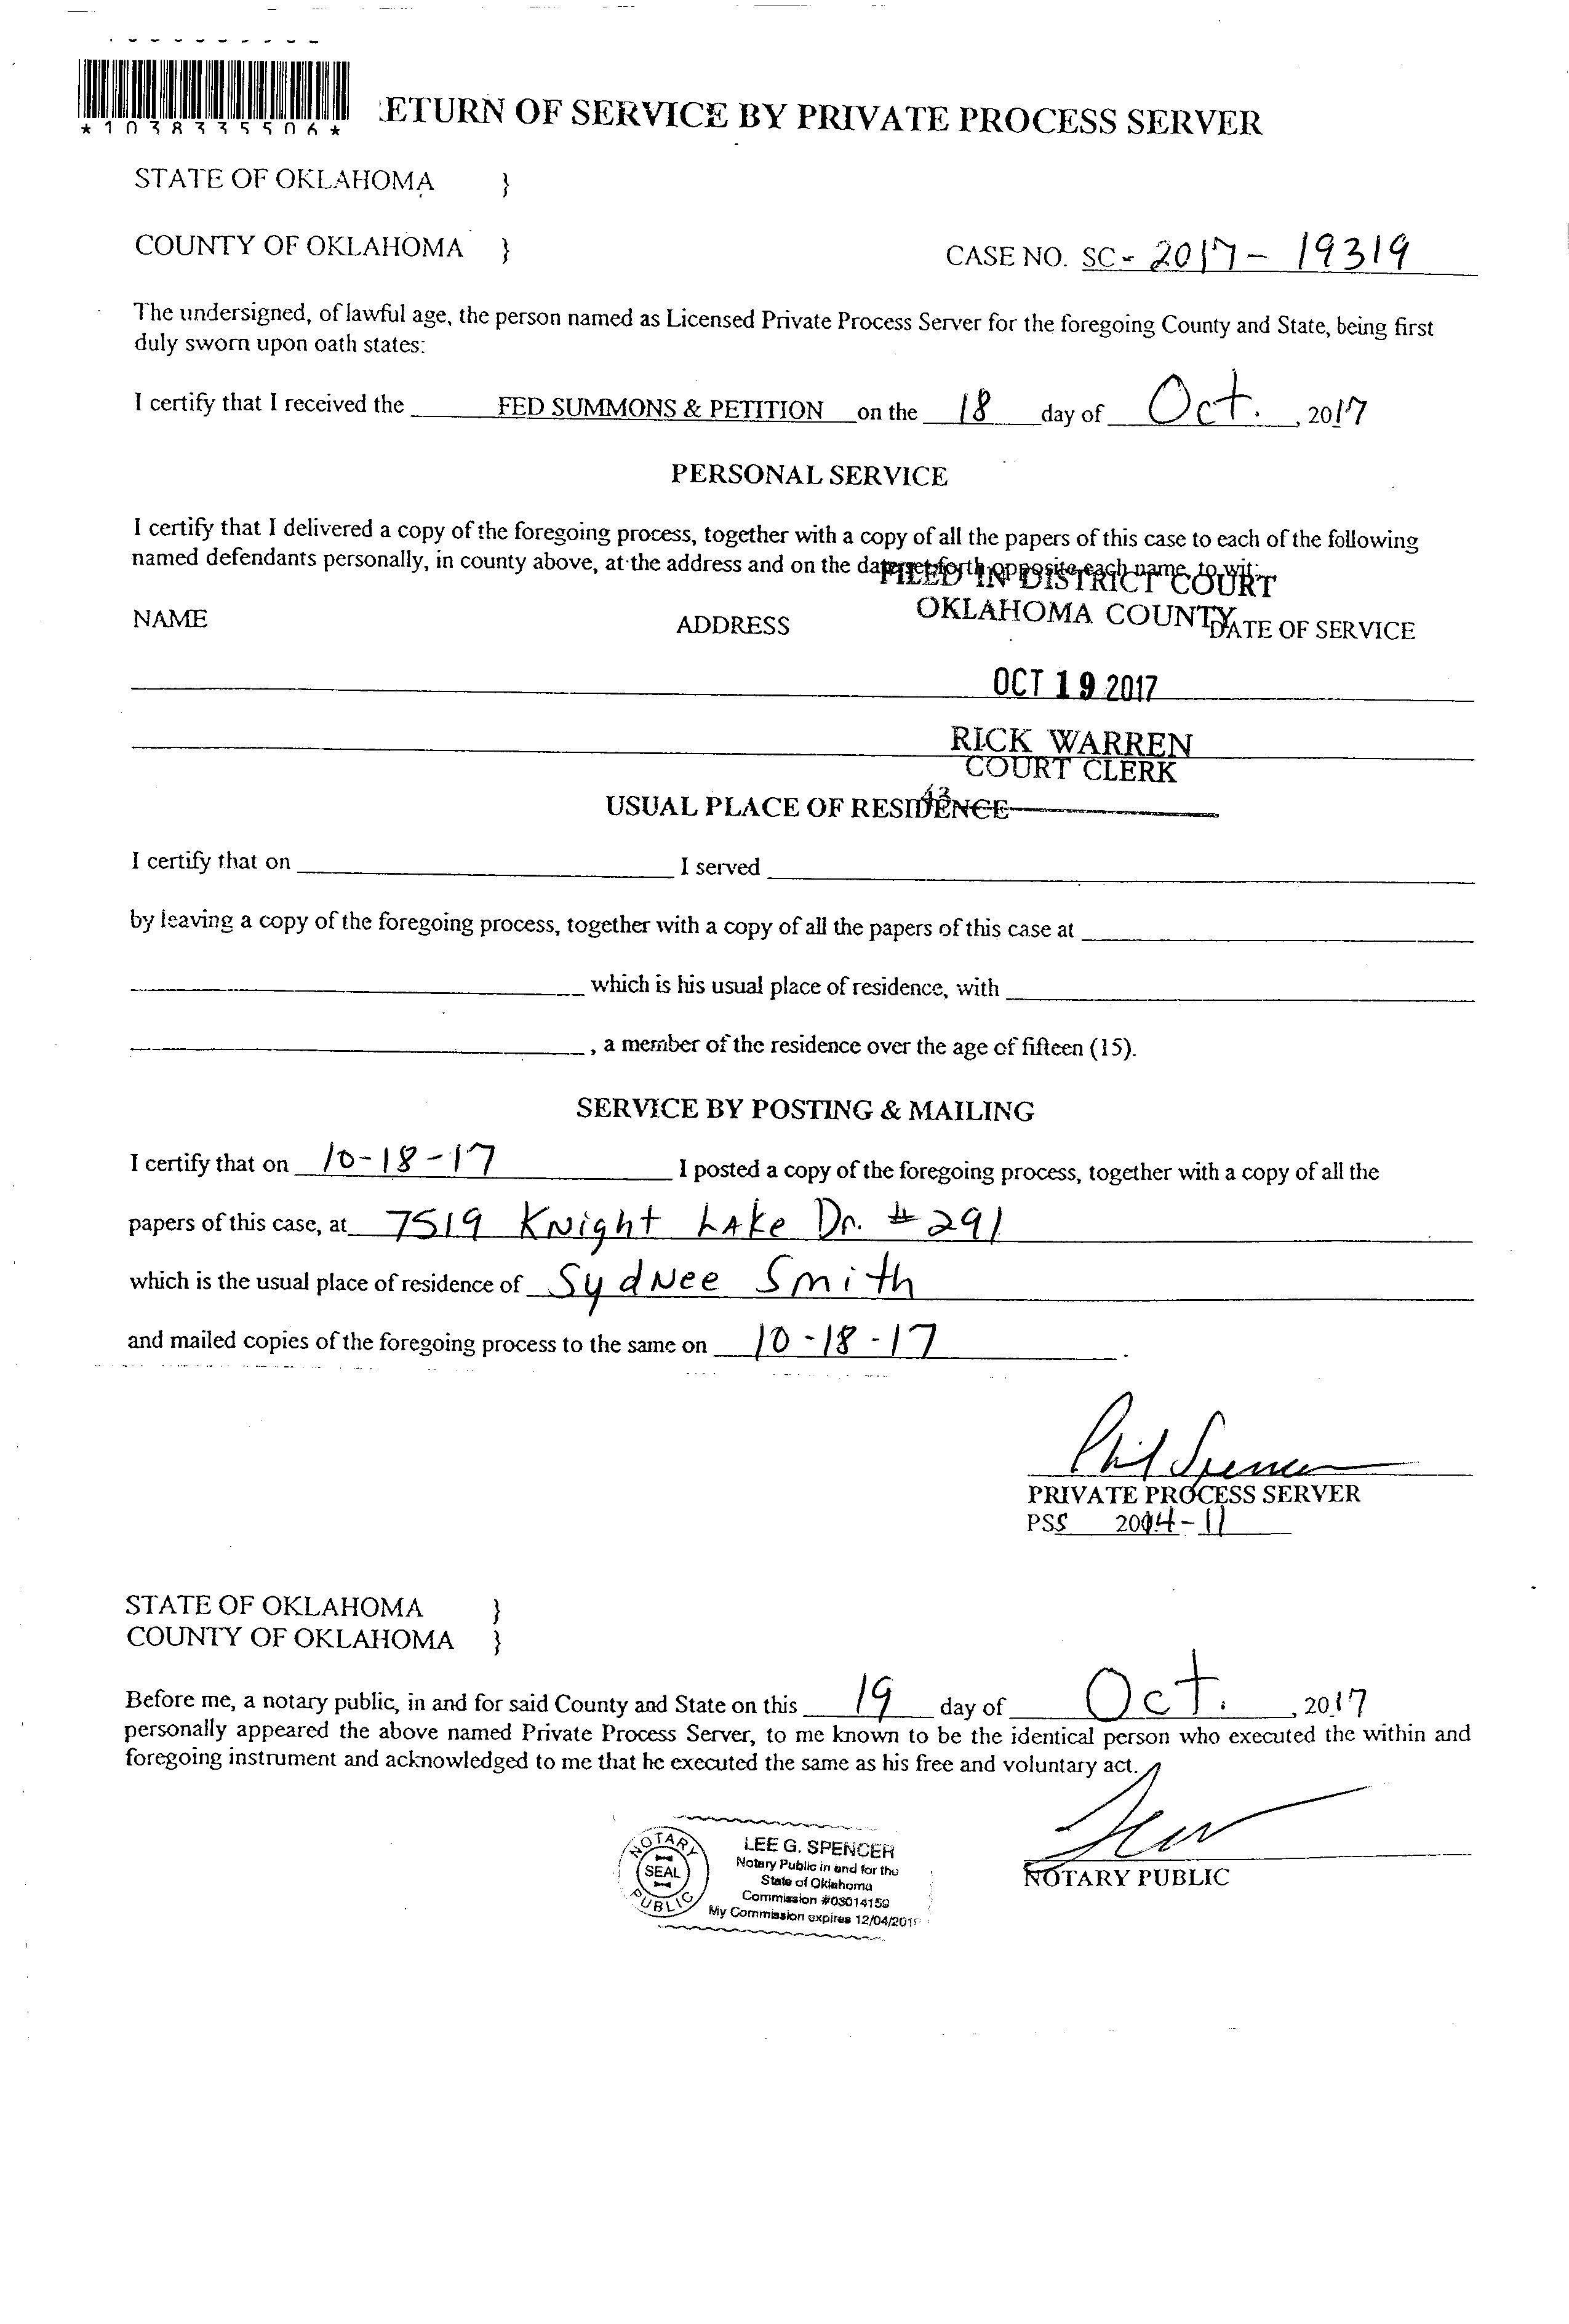 *1038335506*
ETURN OF SERVICE BY PRIVATE PROCESS SERVER
STATE OF OKLAHOMA }
COUNTY OF OKLAHOMA }
CASE NO. SC - 2017 - 19319
The undersigned, of lawful age, the person named as Licensed Private Process Server for the foregoing County and State, being first
duly sworn upon oath states:
I certify that I received the FED SUMMONS & PETITION on the 18 day of Oct. , 2017
PERSONAL SERVICE
I certify that I delivered a copy of the foregoing process, together with a copy of all the papers of this case to each of the following
named defendants personally, in county above, at the address and on the date set forth opposite each name, to wit:
FILED IN DISTRICT COURT
OKLAHOMA COUNTY
NAME ADDRESS DATE OF SERVICE
OCT 19 2017
RICK WARREN
COURT CLERK
43
USUAL PLACE OF RESIDENCE
I certify that on I served
by leaving a copy of the foregoing process, together with a copy of all the papers of this case at
which is his usual place of residence, with
, a member of the residence over the age of fifteen (15).
SERVICE BY POSTING & MAILING
I certify that on 10-18-17 I posted a copy of the foregoing process, together with a copy of all the
papers of this case, at 7519 Knight Lake Dr. # 291
which is the usual place of residence of Sydnee Smith
and mailed copies of the foregoing process to the same on 10-18-17 .
Phil Spencer
PRIVATE PROCESS SERVER
PSS 2014-11
STATE OF OKLAHOMA }
COUNTY OF OKLAHOMA }
Before me, a notary public, in and for said County and State on this 19 day of Oct. , 2017
personally appeared the above named Private Process Server, to me known to be the identical person who executed the within and
foregoing instrument and acknowledged to me that he executed the same as his free and voluntary act.
NOTARY PUBLIC
SEAL
LEE G. SPENCER
Notary Public in and for the
State of Oklahoma
Commission #03014159
My Commission expires 12/04/201
NOTARY PUBLIC